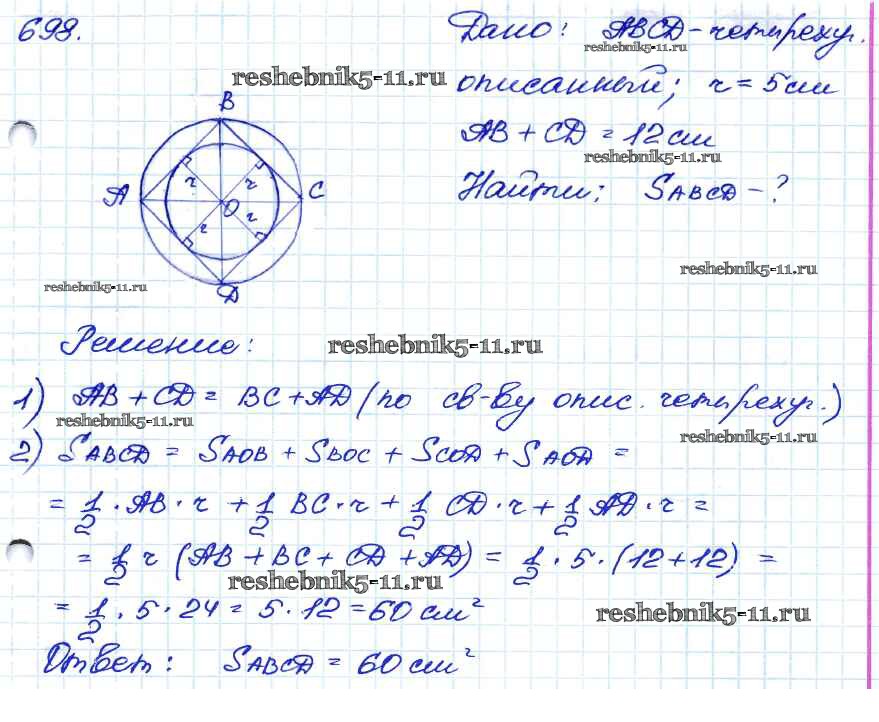 698.
Дано: ABCD - четыреху.
reshebnik5-11.ru
reshebnik5-11.ru
описанный; r = 5 см
B
AB + CD = 12 см
reshebnik5-11.ru
Найти: SABCD - ?
A
r
r
C
O
r
r
reshebnik5-11.ru
reshebnik5-11.ru
D
Решение:
reshebnik5-11.ru
1) AB + CD = BC + AD (по св-ву опис. четыреху.)
reshebnik5-11.ru
reshebnik5-11.ru
2) SABCD = SAOB + SBOC + SCOD + SAOD =
= 1/2 · AB · r + 1/2 BC · r + 1/2 CD · r + 1/2 AD · r =
= 1/2 r (AB + BC + CD + AD) = 1/2 · 5 · (12 + 12) =
reshebnik5-11.ru
= 1/2 · 5 · 24 = 5 · 12 = 60 см²
reshebnik5-11.ru
Ответ: SABCD = 60 см²